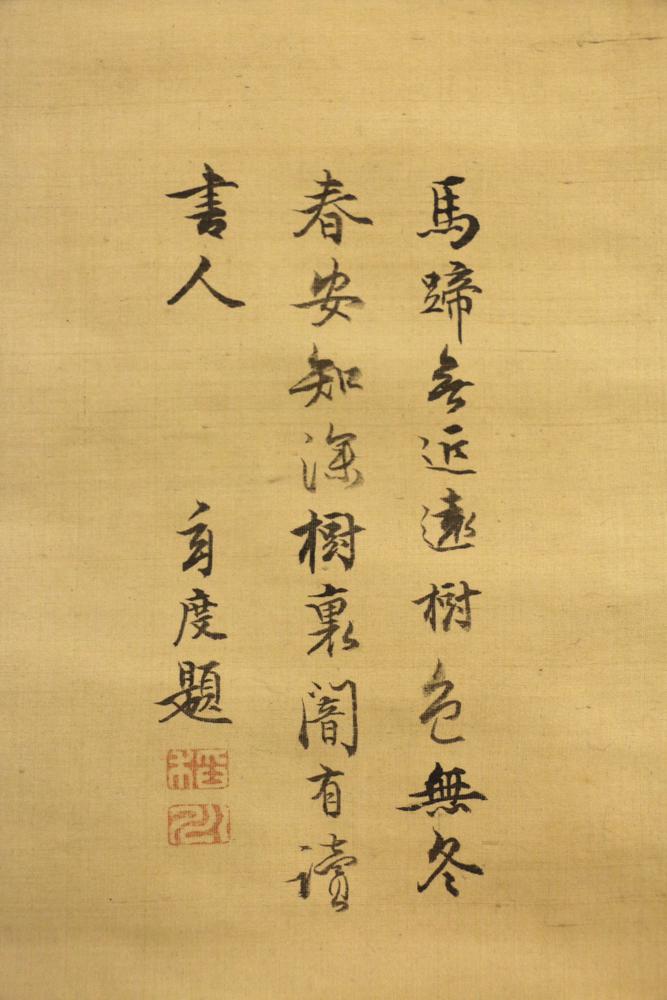 馬蹄近遠樹色無冬
春安知深樹裏闇有讀
書人
度題